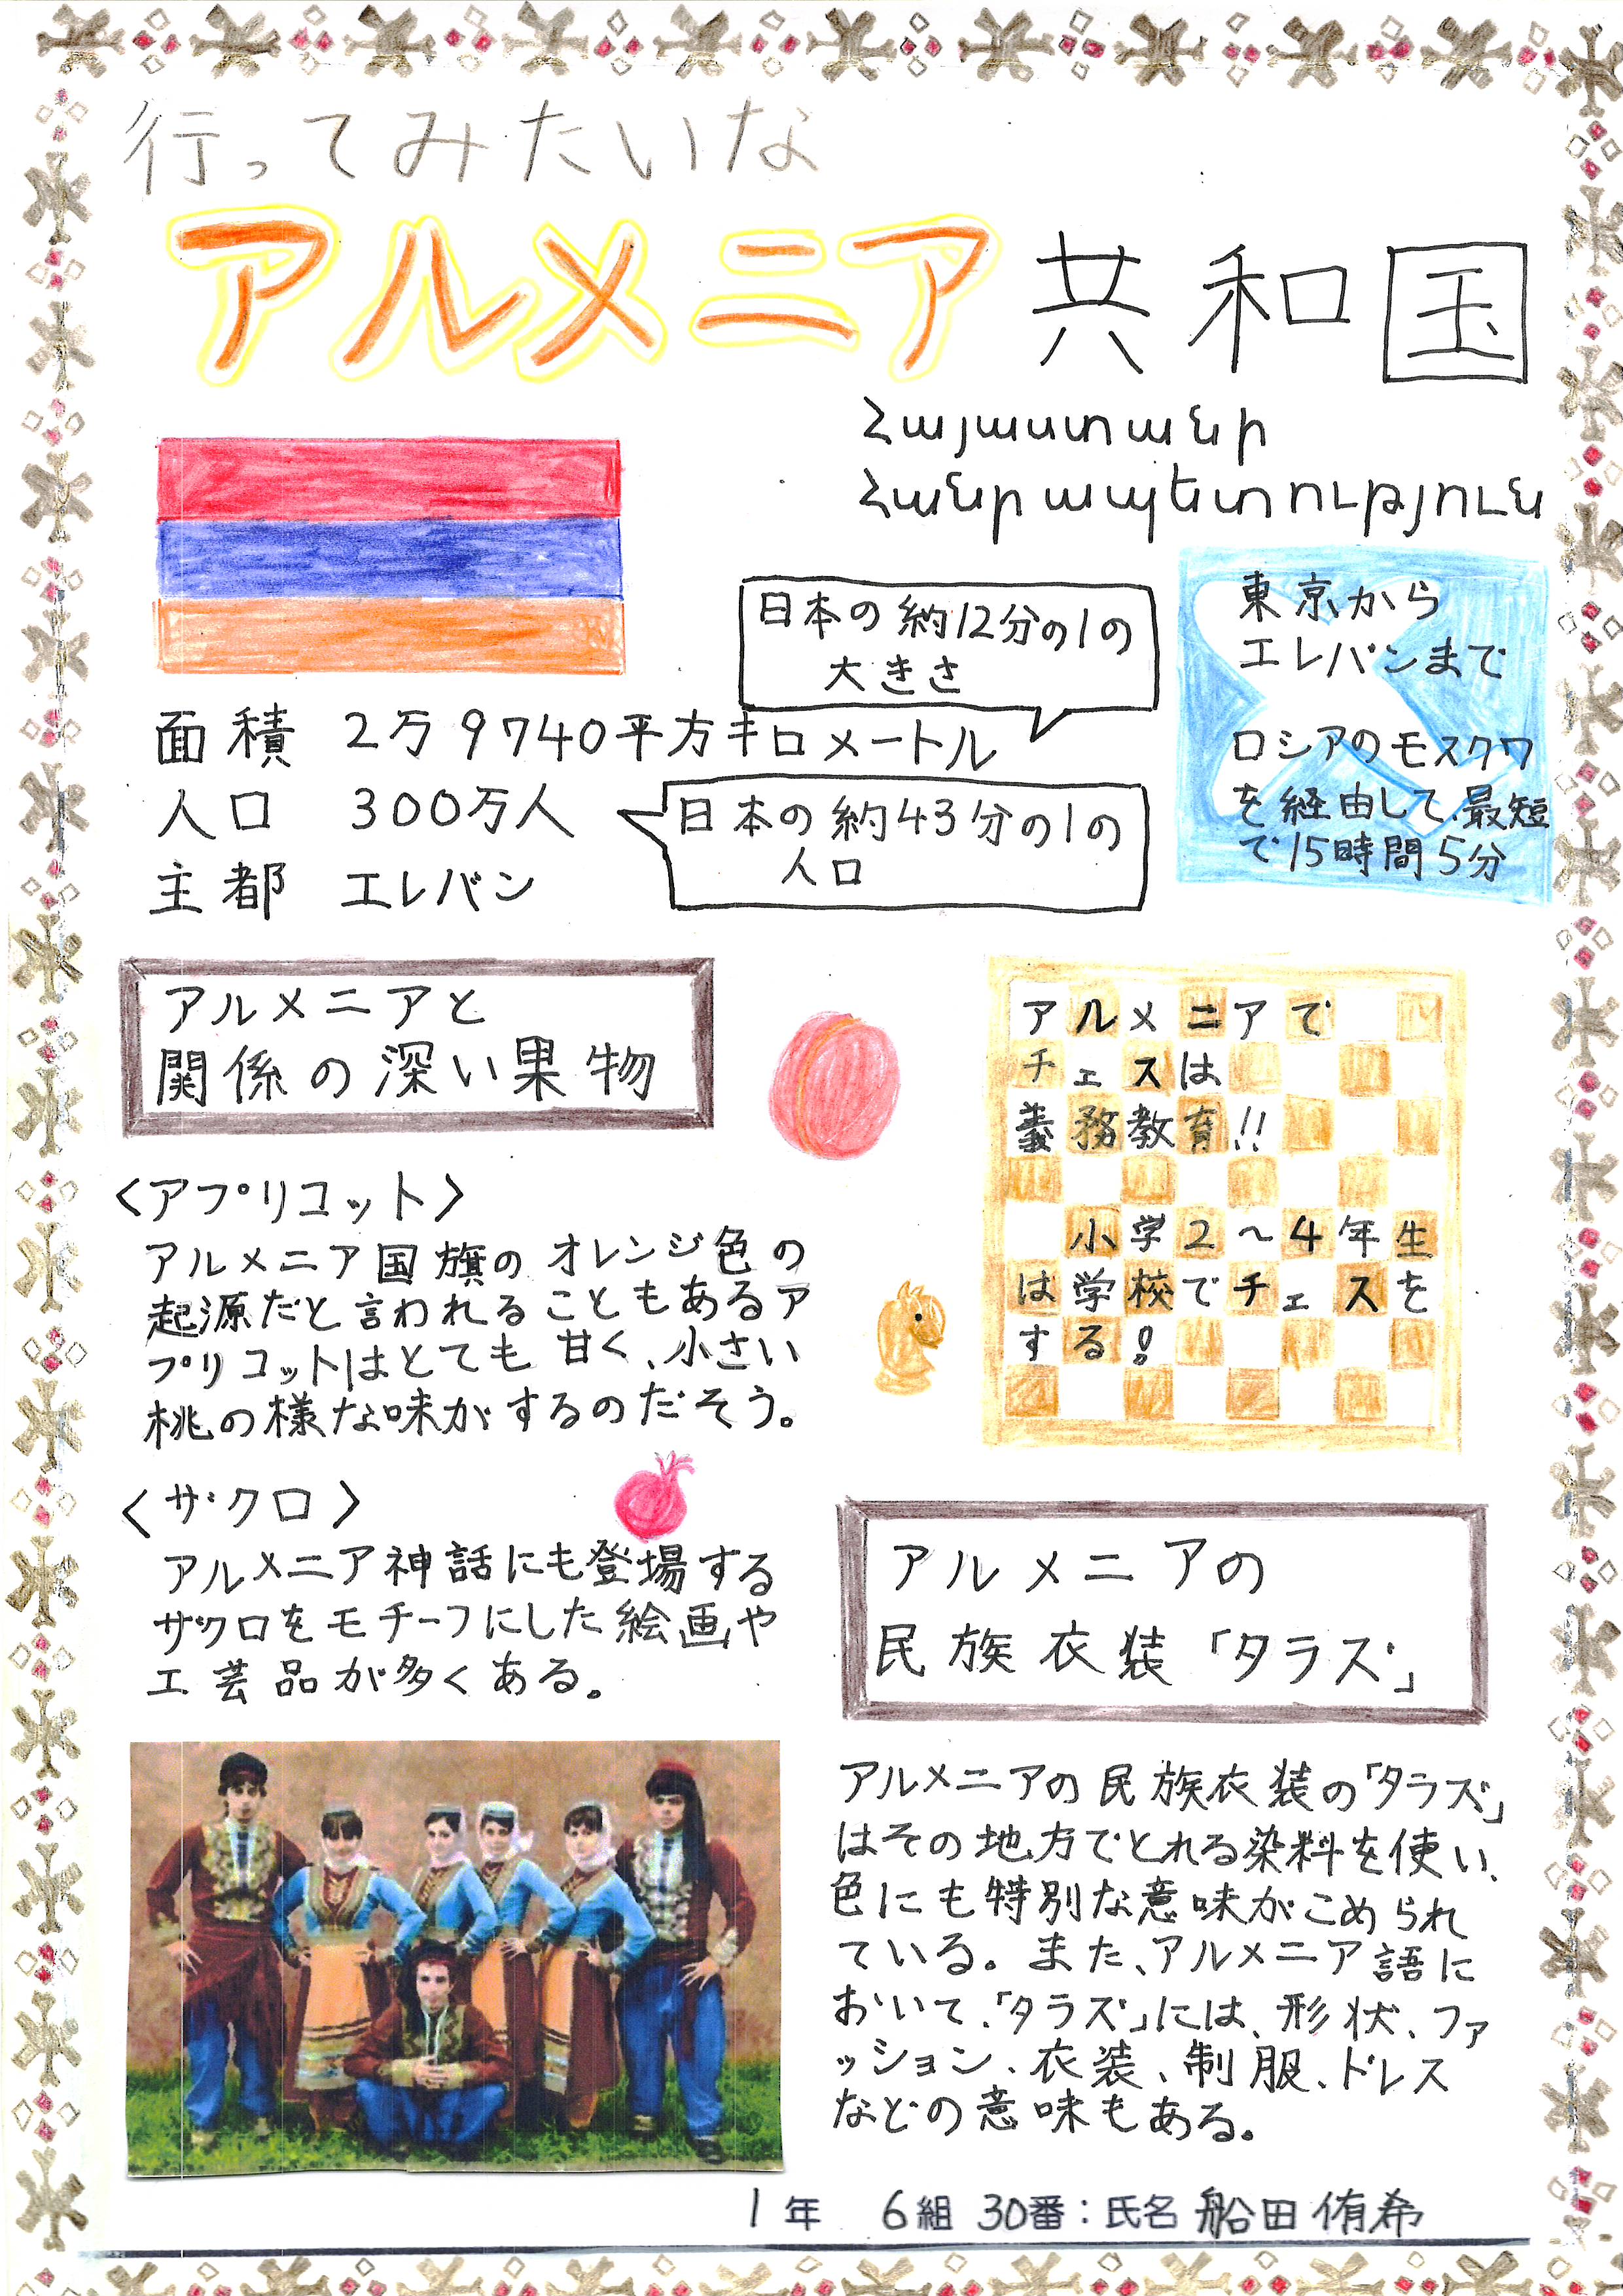 行ってみたいな
アルメニア共和国
Հայաստանի
Հանրապետություն
日本の約12分の1の
大きさ
東京から
エレバンまで
ロシアのモスクワ
を経由して、最短
で15時間5分
面積 2万9740平方キロメートル
人口 300万人
日本の約43分の1の
人口
主都 エレバン
アルメニアと
関係の深い果物
アルメニアで
チェスは
義務教育!!
小学2〜4年生
は学校でチェスを
する!
〈アプリコット〉
アルメニア国旗のオレンジ色の
起源だと言われることもあるア
プリコットはとても甘く、小さい
桃の様な味がするのだそう。
〈ザクロ〉
アルメニア神話にも登場する
ザクロをモチーフにした絵画や
工芸品が多くある。
アルメニアの
民族衣装「タラズ」
アルメニアの民族衣装の「タラズ」
はその地方でとれる染料を使い、
色にも特別な意味がこめられ
ている。また、アルメニア語に
おいて、「タラズ」には、形状、ファ
ッション、衣装、制服、ドレス
などの意味もある。
1年 6組 30番:氏名 船田侑希